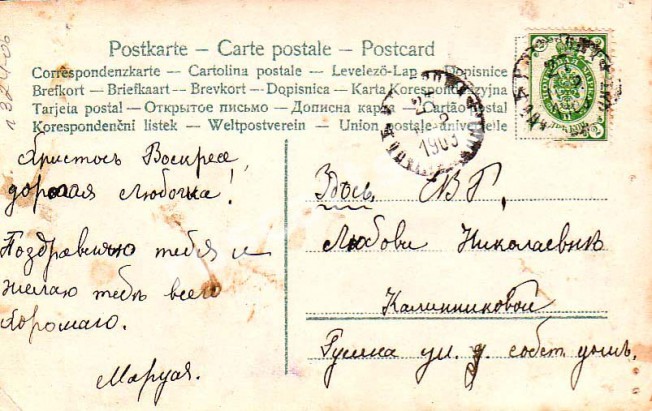 1324-06
Postkarte – Carte postale – Postcard
Correspondenzkarte – Cartolina postale – Levelező-Lap – Dopisnice
Brefkort – Briefkaart – Brevkort – Dopisnica – Karta Korespondencyjna
Tarjeta postal – Открытое письмо – Дописна карта – Cartão postal
Korespondenční listek – Weltpostverein – Union postale universelle
1903
Христосъ Воскресе
дорогая Любочка!
Поздравляю тебя и
желаю тебѣ всего
хорошаго.
Маруся.
Здѣсь, ЕВГ,
Любови Николаевнѣ
Калинниковой
ул. д. собст. домъ,